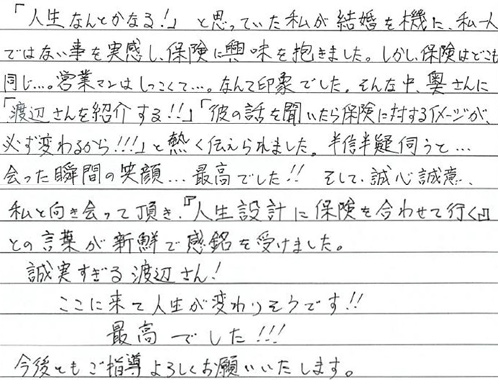 「人生なんとかなる!」と思っていた私が結婚を機に、私一人
ではない事を実感し、保険に興味を抱きました。しかし、保険はどこも
同じ…。営業マンはしつこくて…。なんて印象でした。そんな中、奥さんに
「渡辺さんを紹介する!!」「彼の話を聞いたら保険に対するイメージが、
必ず変わるから!!!」と熱く伝えられました。半信半疑伺うと…
会った瞬間の笑顔…最高でした!!そして、誠心誠意、
私と向き会って頂き、『人生設計に保険を合わせて行く』
との言葉が新鮮で感銘を受けました。
誠実すぎる渡辺さん!
ここに来て人生が変わりそうです!!
最高でした!!!
今後ともご指導よろしくお願いいたします。